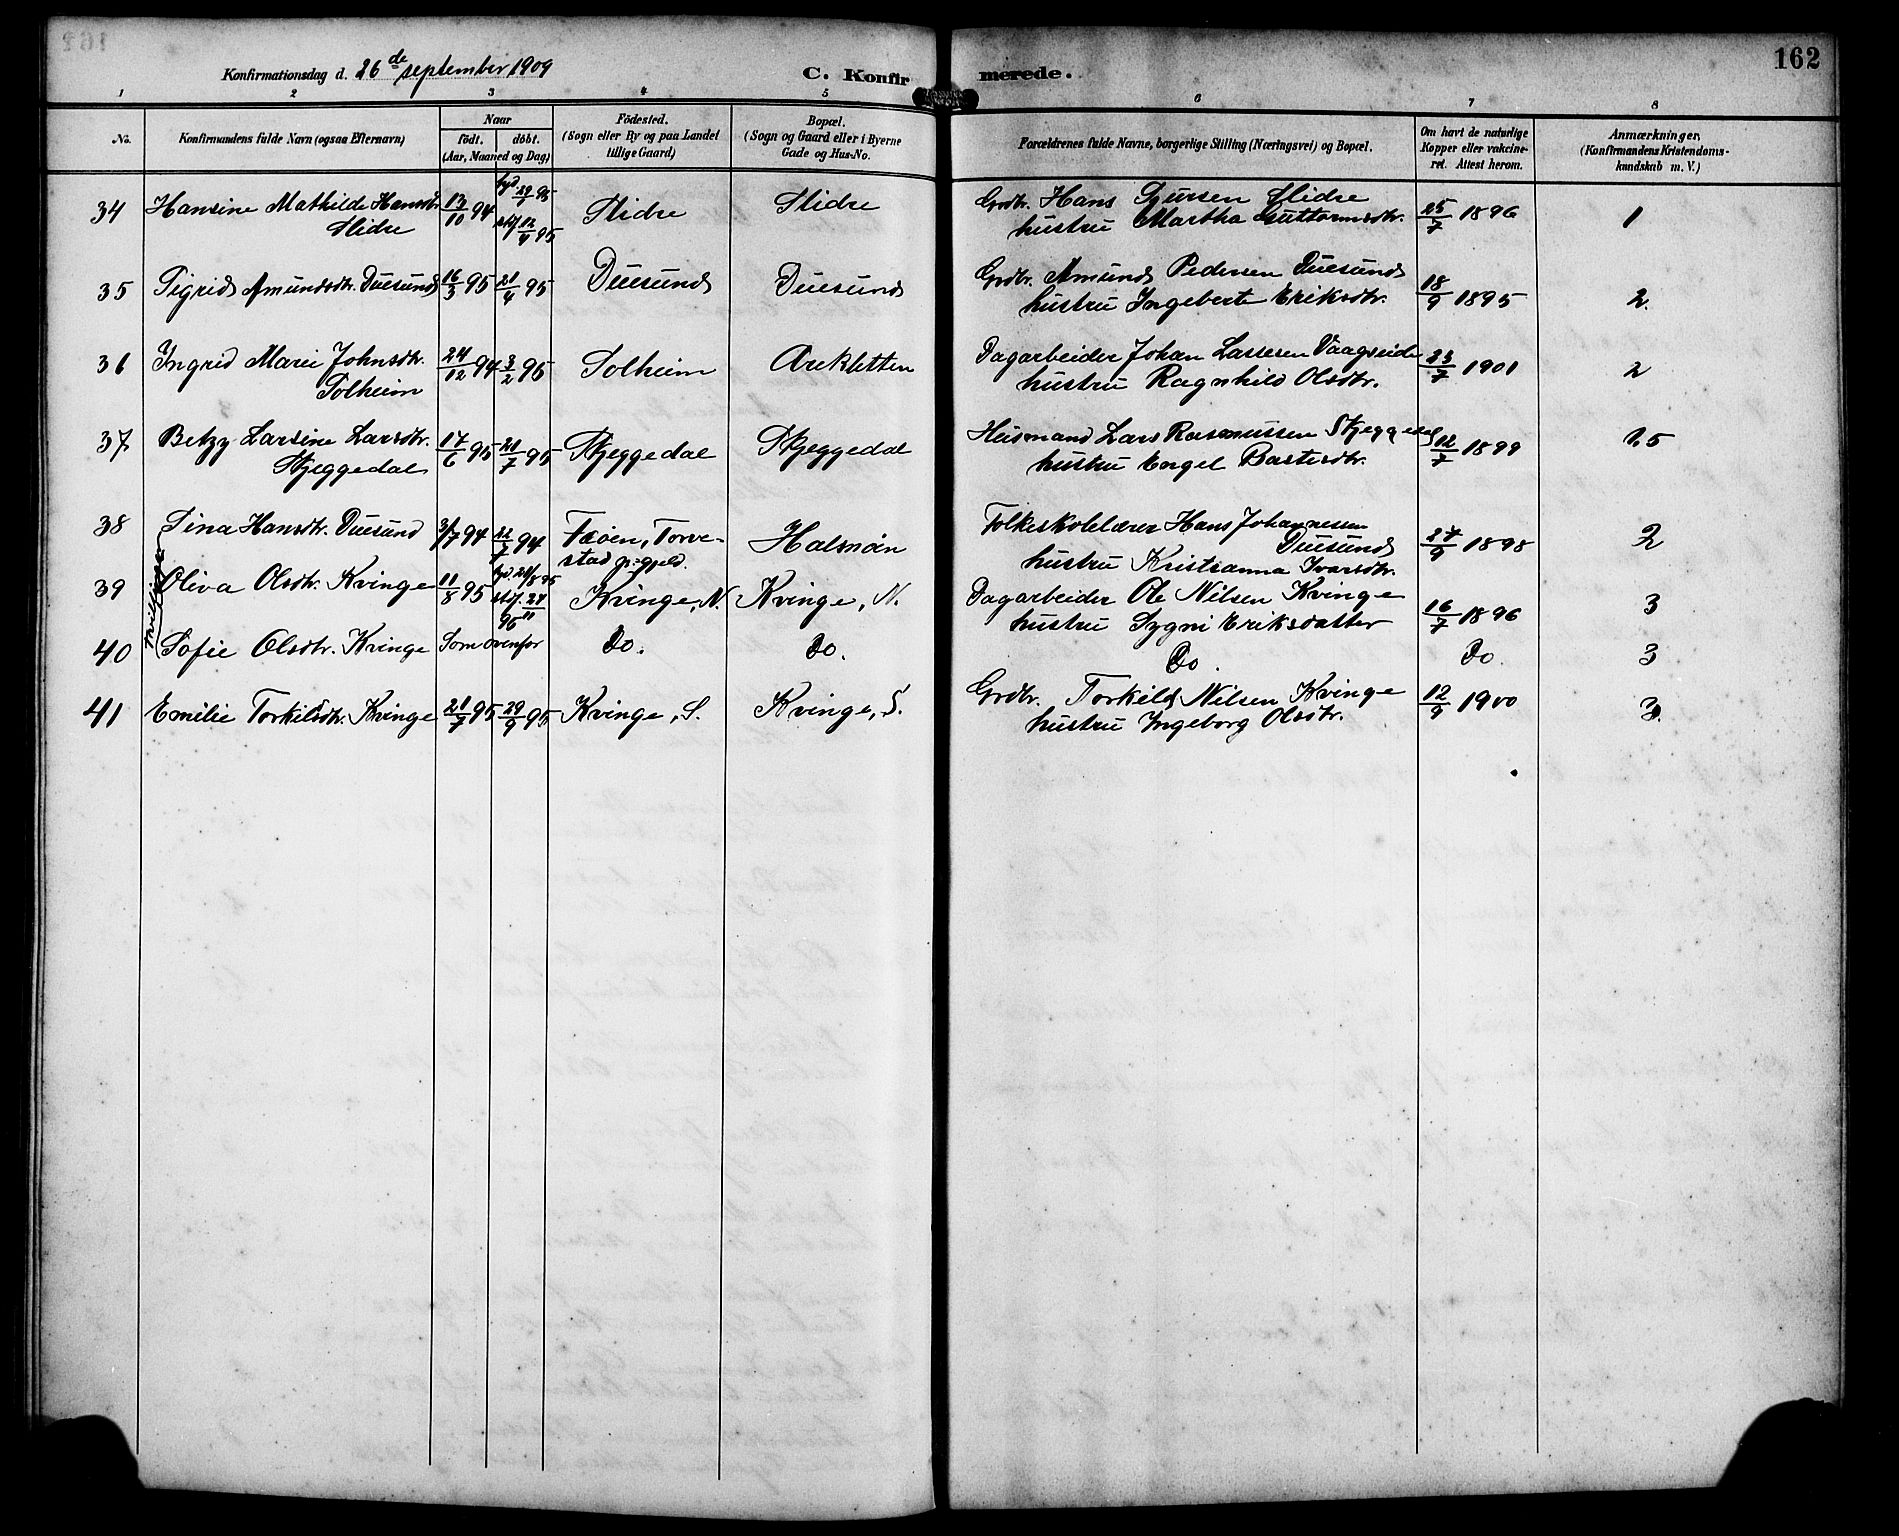 162
Konfirmationsdag d. 26 de september 1909
C. Konfirmerede.
1 2 3 4 5 6 7 8
No.
Konfirmandens fulde Navn (ogsaa Efternavn)
Naar
födt. döbt.
(Aar, Maaned og Dag)
Födested.
(Sogn eller By og paa Landet
tillige Gaard)
Bopæl.
(Sogn og Gaard eller i Byerne
Gade og Hus-No.
Forældrenes fulde Navne, borgerlige Stilling (Næringsvei) og Bopæl.
Om havt de naturlige
Kopper eller vakcine-
ret. Attest herom.
Anmærkninger.
(Konfirmandens Kristendoms-
kundskab m. V.)
34 Hansine Mathilde Hansdtr. 13/10 94 Slidre Slidre Grdbr. Hans Sjursen Slidre 25/7 1896 1
Slidre stdf. 12/4 95 hustru Martha Guttormsdtr.
35 Sigrid Amundsdtr. Duesund 16/3 95 21/4 95 Duesund Duesund Grdbr. Amund Pedersen Duesund 18/9 1895 2.
hustru Ingeborte Eriksdtr.
36 Ingrid Marie Johnsdtr. 24/12 94 3/2 95 Solheim Arekletten Dagarbeider Johan Lassesen Vaagseide 23/7 1901 2
Solheim hustru Ragnhild Olsdtr.
37 Betzy Larsine Larsdtr. 17/6 95 21/7 95 Skjeggedal Skjeggedal Husmand Lars Rasmussen Skjeggedal 12/7 1899 2,5
Skjeggedal hustru Engel Bastesdtr.
38 Sina Hansdtr. Duesund 3/7 94 22/7 94 Fæöen, Torve- Halsnöin Folkeskolelærer Hans Johannessen 27/9 1898 2
stad p.gjeld. Duesund
hustru Kristianna Ivarsdtr.
tvillinger
39 Oliva Olsdtr. Kvinge 11/8 95 stdf. 24/11 95 Kvinge, N. Kvinge, N. Dagarbeider Ole Nilsen Kvinge 16/7 1896 3
hustru Sygni Eriksdatter
40 Sofie Olsdtr. Kvinge Som ovenfor Do. Do. Do. Do. 3
41 Emilie Torkildsdtr. Kvinge 21/7 95 29/9 95 Kvinge, S. Kvinge, S. Grdbr. Torkild Nilsen Kvinge 12/9 1900 3.
hustru Ingeborg Olsdtr.